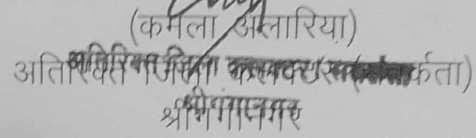 (कमला अलारिया)
अतिरिक्त जिला कलक्टर (सतर्कता)
श्रीगंगानगर